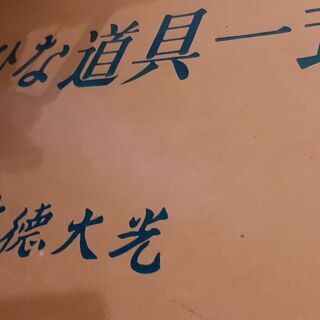 ひな道具一
徳大光